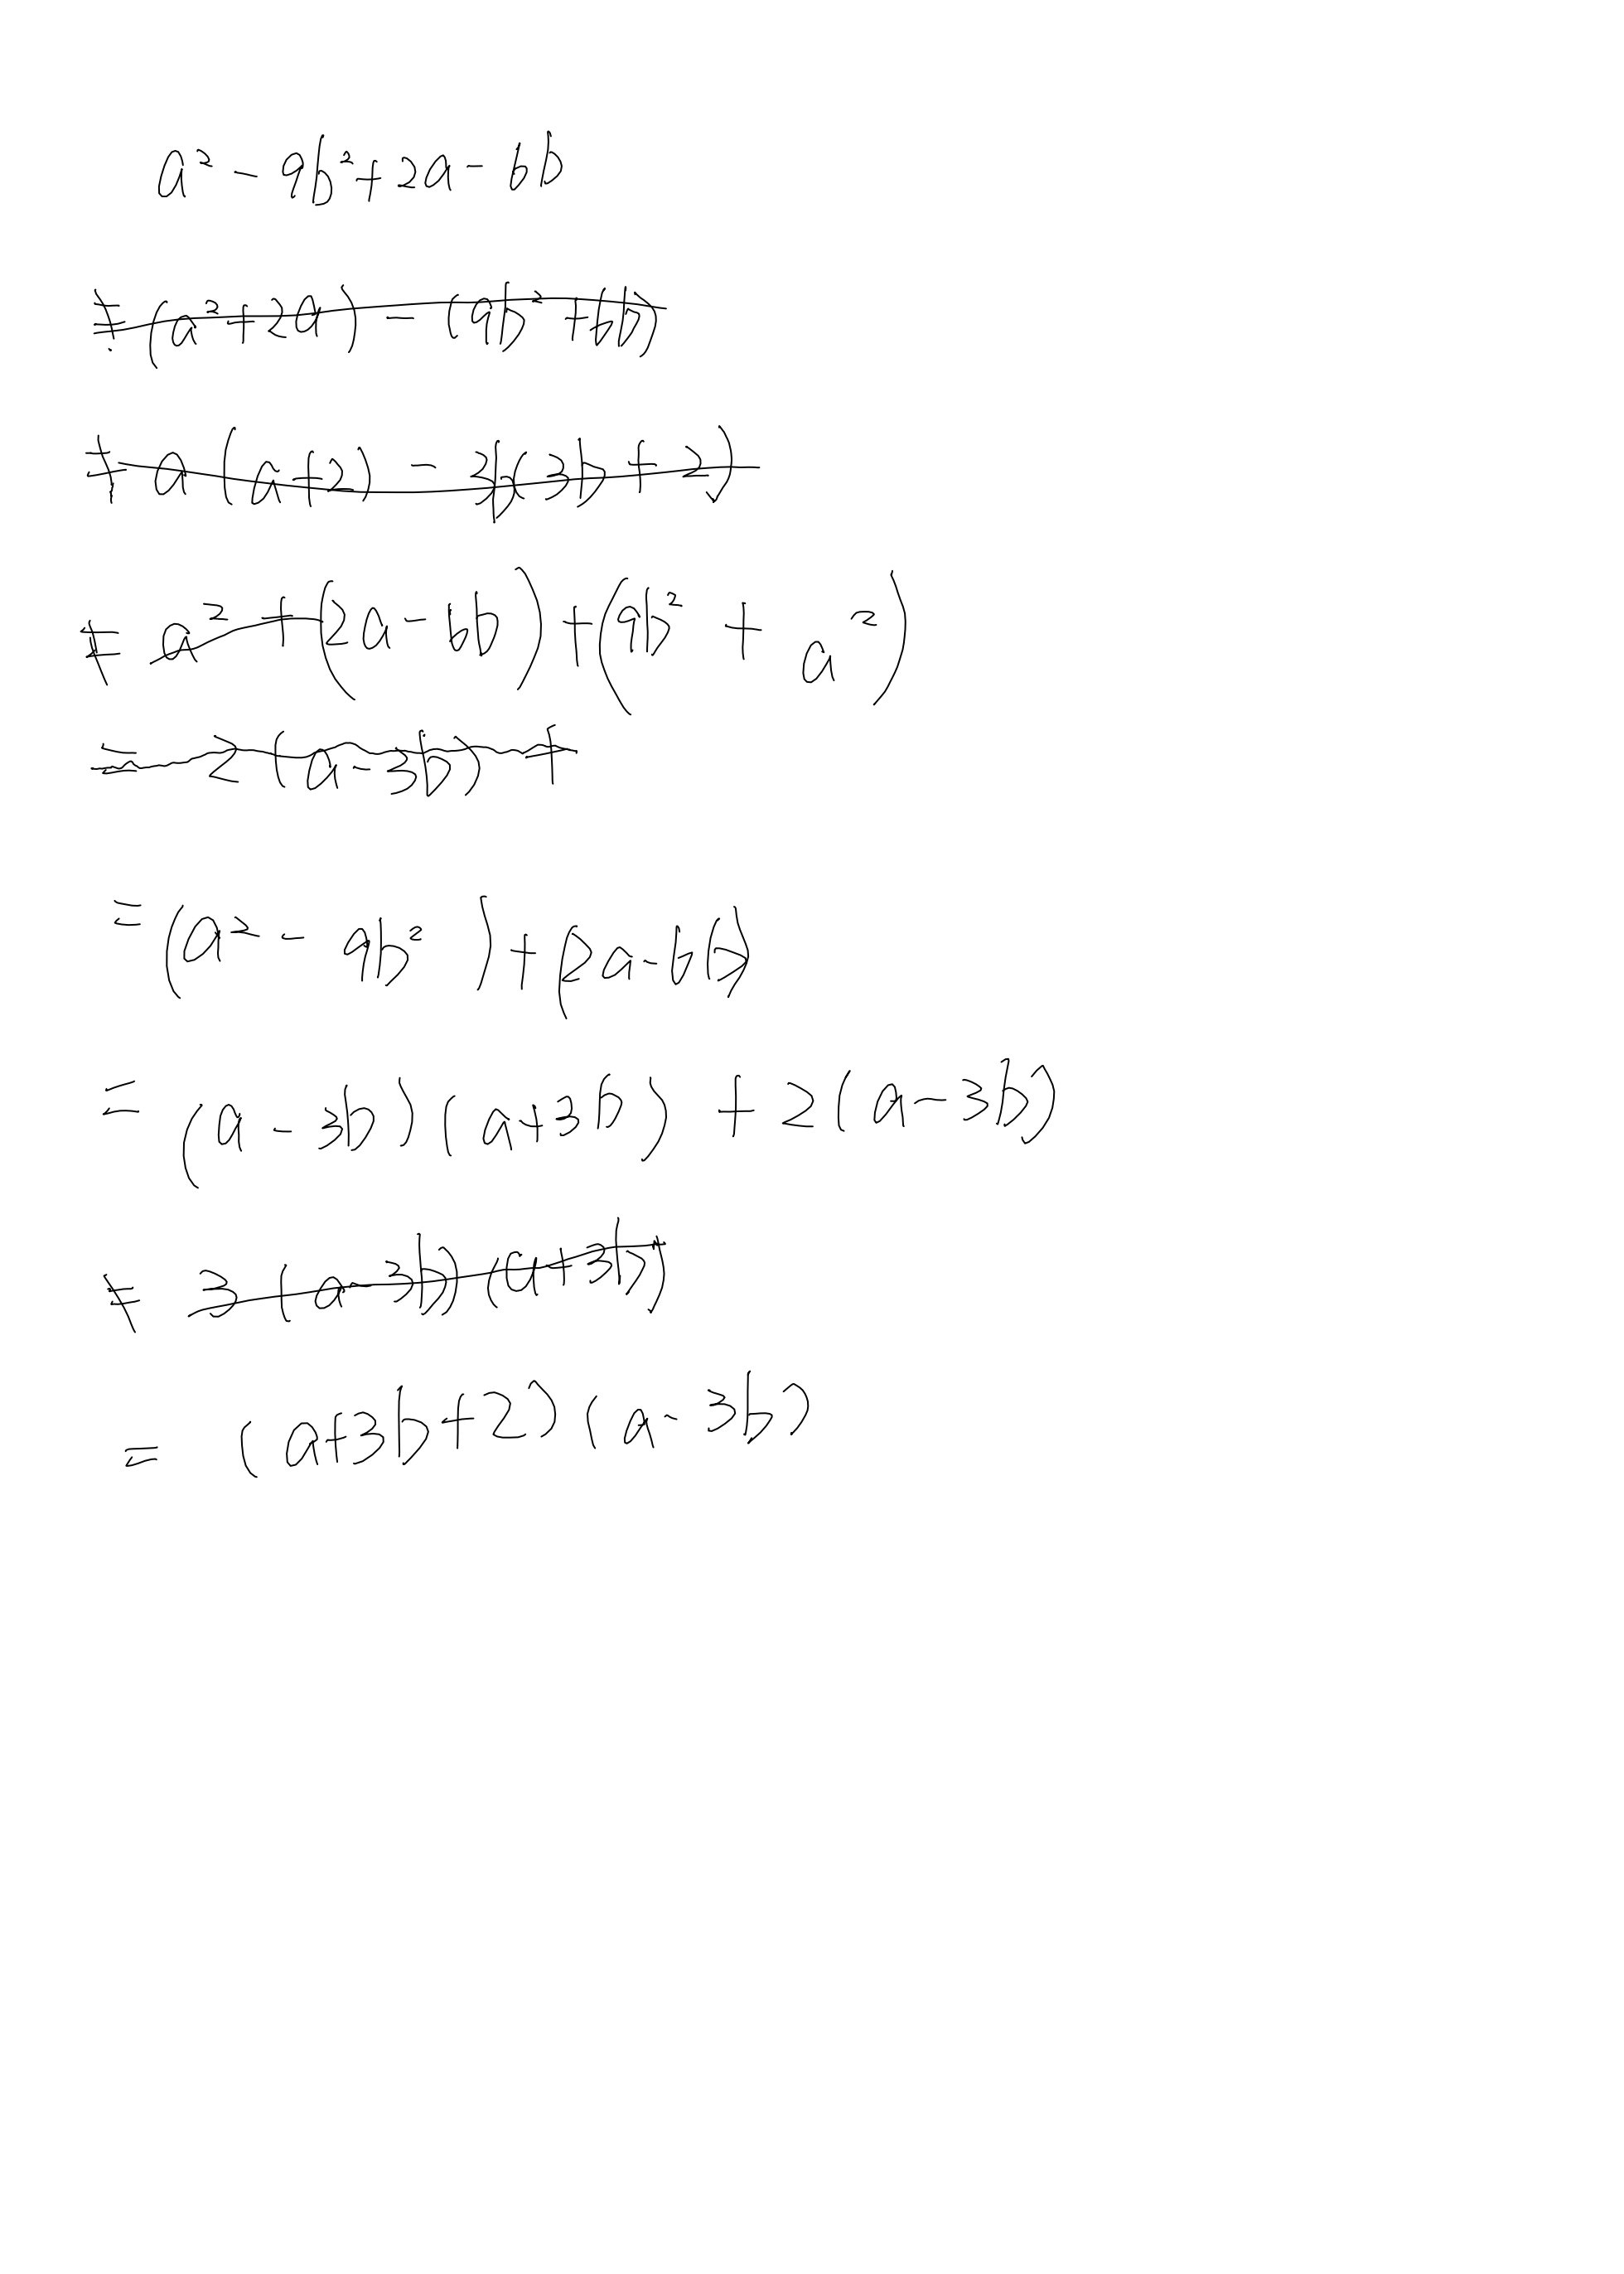 a² - 9b² + 2a - 6b
= (a² + 2a) - (9b² + 6b)
= a(a + 2) - 3b(3b + 2)
= a² + (2a - 6b) + (9b² + a²)
= 2(a - 3b) +
= (a² - 9b²) + (2a - 6b)
= (a - 3b)(a + 3b) + 2(a - 3b)
= 3(a - 3b)(a + 3b)
= (a + 3b + 2)(a - 3b)